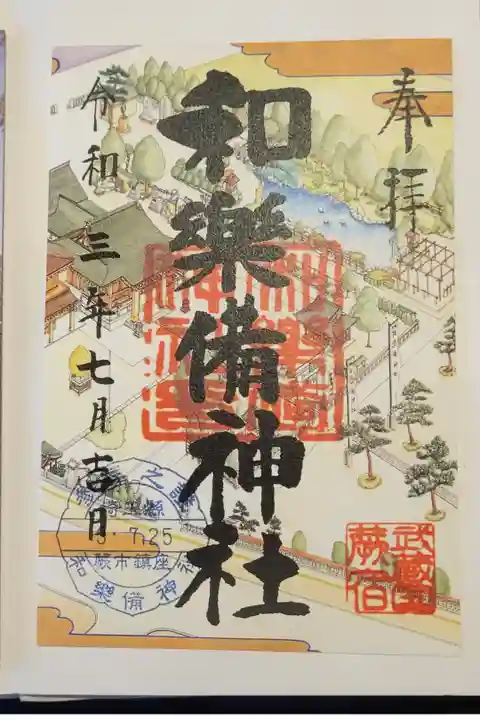 奉拝
和樂備神社
令和三年七月吉日
武蔵
蕨宿
埼玉縣
3.7.25
蕨市鎮座
和樂備神社